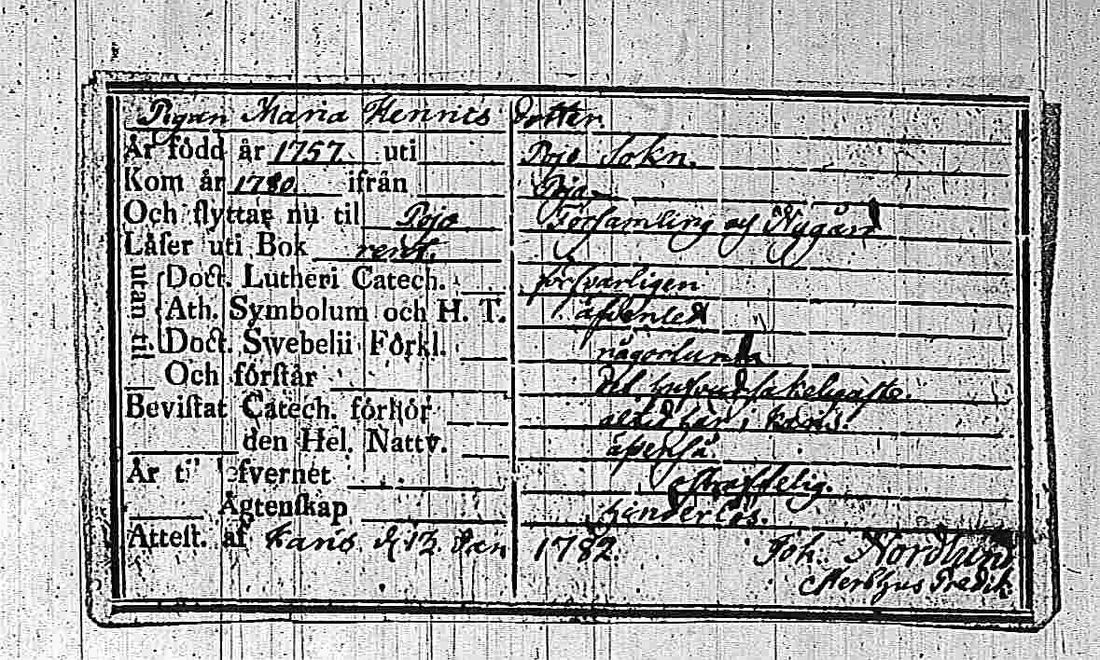 Pigan Maria Henrics dotter
År född år 1757 uti Pojo Sokn.
Kom år 1780 ifrån Pojo
Och flyttar nu til Pojo Församling af Nygård
Låſer uti Bok rent.
utan til
Doct. Lutheri Catech. förſvarligen
Ath. Symbolum och H. T. äfvenled
Doct. Swebelii Förkl. någorlunda
Och förſtår det hufvudſakeligaſte.
Beviſtat Catech. förhör altid här i
den Hel. Nattv. äfvenſå.
År til lefvernet oſtraffelig.
Ägtenſkap hinderlös.
Atteſt. af Karis d 12. Jan 1782. Joh. Nordlund
Predik.